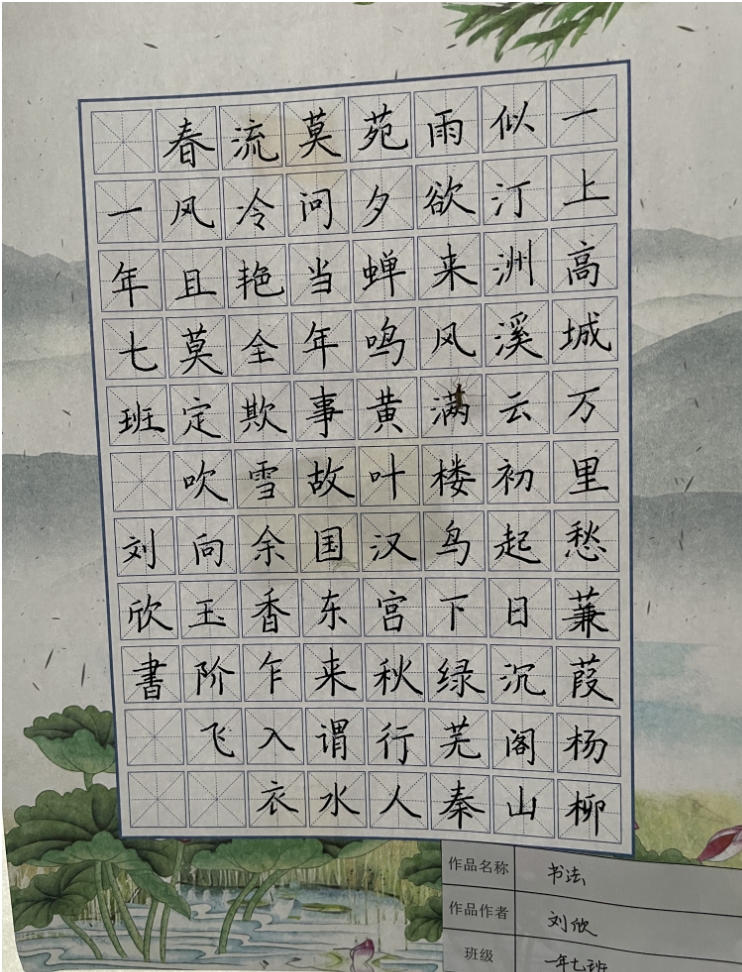 一上高城万里愁蒹葭杨柳
似汀洲溪云初起日沉阁山
雨欲来风满楼鸟下绿芜秦
苑夕蝉鸣黄叶汉宫秋行人
莫问当年事故国东来谓水
流冷艳全欺雪余香乍入衣
春风且莫定吹向玉阶飞
一年七班刘欣書
作品名称 书法
作品作者 刘欣
班级 一年七班